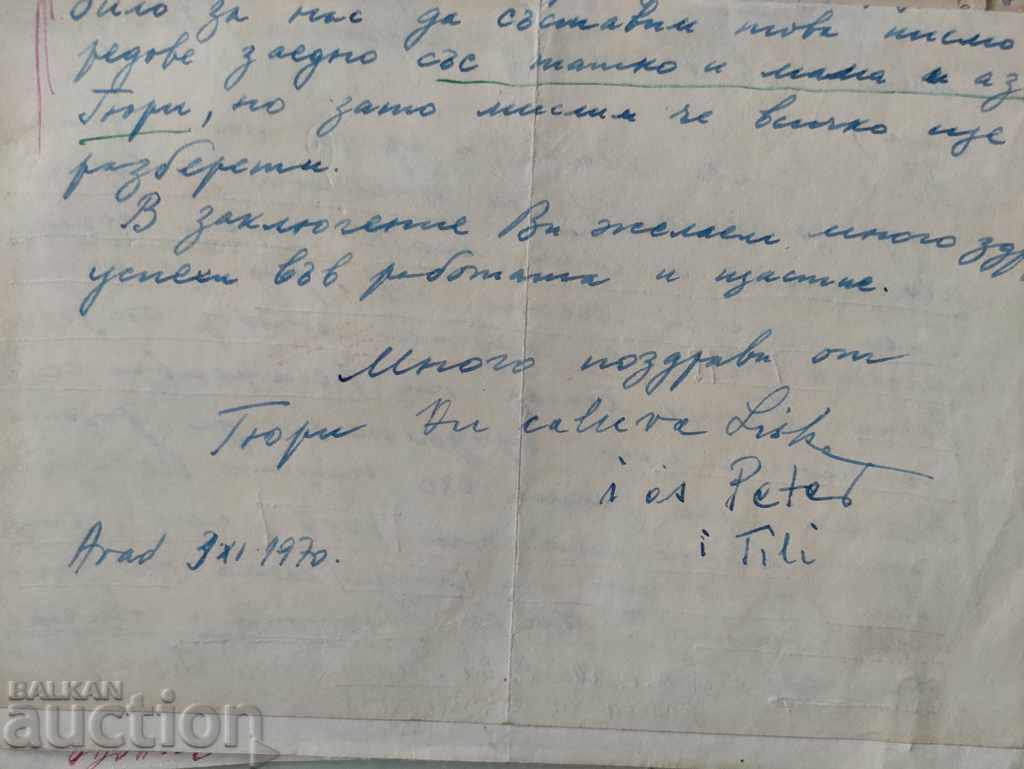 било за нас да съставим това писмо
редове заедно със татко и мама и аз
Гюри, но зато мислим че всичко ще
разберети.
В заключение Ви желаем много здр
успехи във работата и щастие.
Много поздрави от
Гюри Vu caluva Liska
i as Peter
i Tili
Arad 9 XI. 1970.
BALKAN
auction